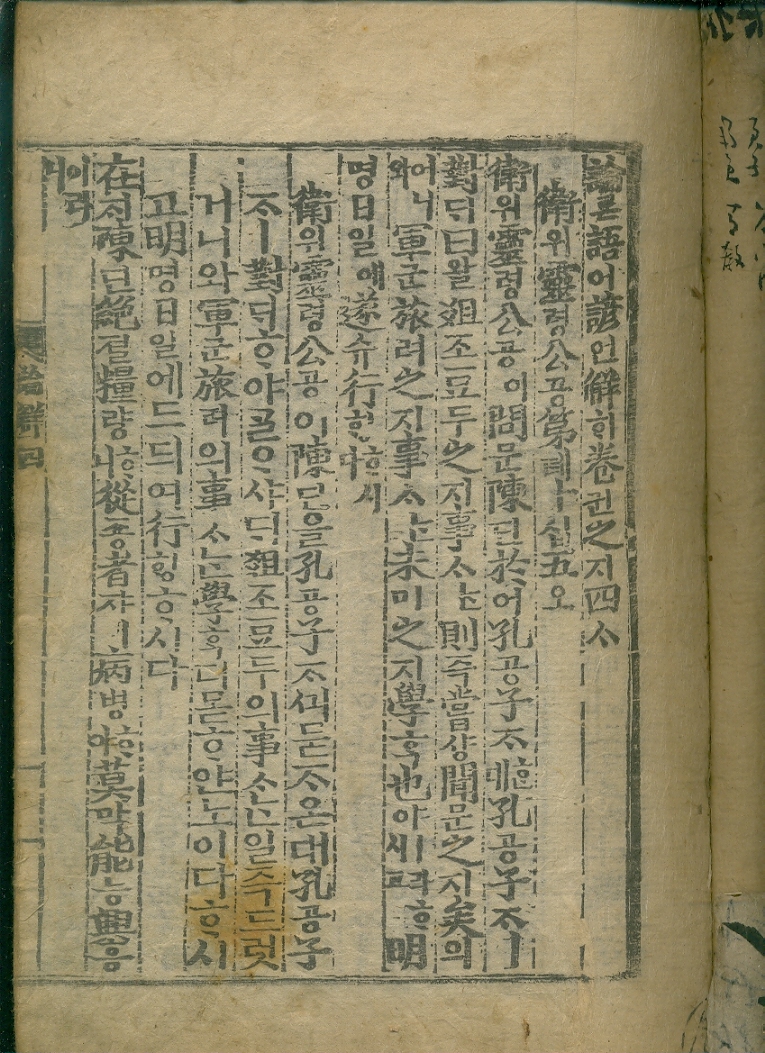 論론語어諺언解ᄒᆡ卷권之지四ᄉᆞ
衛위靈령公공第뎨十십五오
衛위靈령公공이問문陳딘於어孔공子ᄌᆞᄒᆞᆫ대孔공子ᄌᆞㅣ
對ᄃᆡ曰왈俎조豆두之지事ᄉᆞᄂᆞᆫ則즉嘗샹聞문之지矣의
어니와軍군旅려之지事ᄉᆞᄂᆞᆫ未미之지學ᄒᆞᆨ也야ㅣ라ᄒᆞ시고明
명日일에遂슈行ᄒᆡᆼᄒᆞ시다
衛위靈령公공이陳딘을孔공子ᄌᆞᄭᅴ묻ᄌᆞ온대孔공子
ᄌᆞㅣ對ᄃᆡᄒᆞ야ᄀᆞᆯᄋᆞ샤ᄃᆡ俎조豆두의事ᄉᆞᄂᆞᆫ일즉드럿
거니와軍군旅려의事ᄉᆞᄂᆞᆫ學ᄒᆞᆨ디몯ᄒᆞ얀노이다ᄒᆞ시
고明명日일에드듸여行ᄒᆡᆼᄒᆞ시다
在ᄌᆡ陳딘絶졀糧량ᄒᆞ니從죵者쟈ㅣ病병ᄒᆞ야莫막能능興흥
이러니
解四